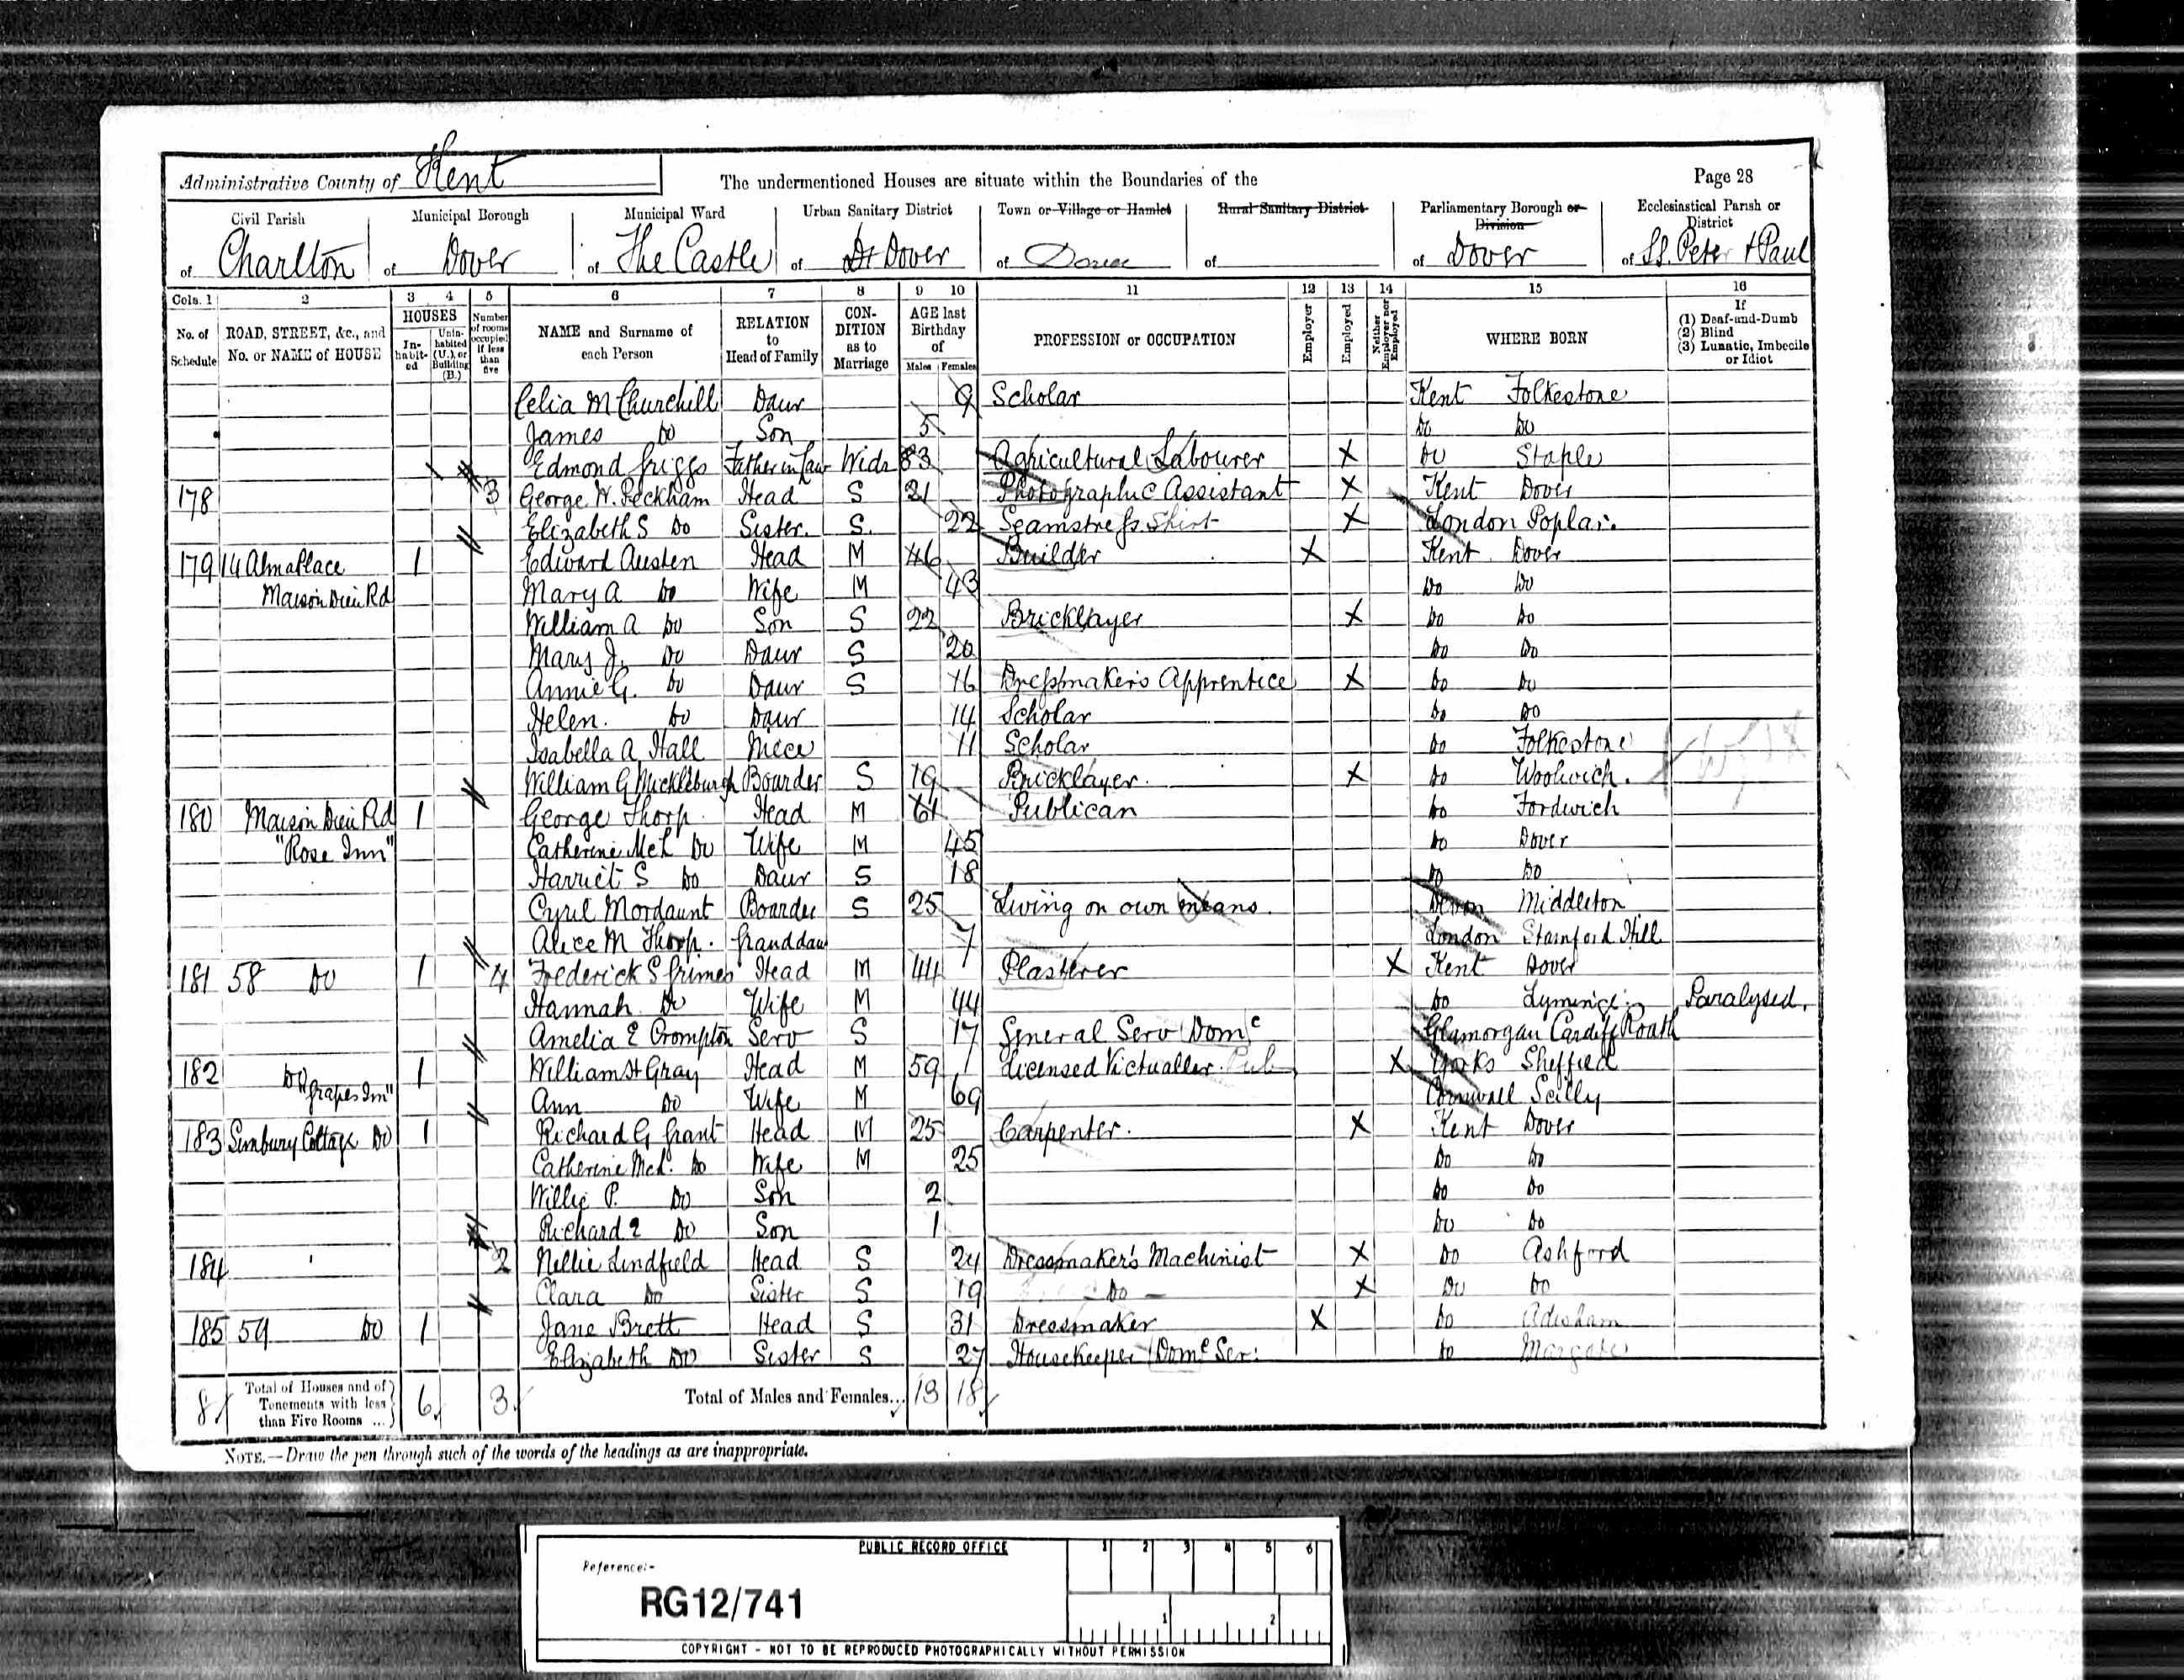 Administrative County of Kent The undermentioned Houses are situate within the Boundaries of the Page 28
Civil Parish Municipal Borough Municipal Ward Urban Sanitary District Town or Village or Hamlet Rural Sanitary District Parliamentary Borough or Division Ecclesiastical Parish or District
of Charlton of Dover of The Castle of Dover of Dover of of Dover of SS. Peter & Paul
Cols. 1 2 3 4 5 6 7 8 9 10 11 12 13 14 15 16
No. of Schedule ROAD, STREET, &c., and No. or NAME of HOUSE HOUSES In-habit-ed Unin-habited (U.), or Building (B.) Number of rooms occupied if less than five NAME and Surname of each Person RELATION to Head of Family CON-DITION as to Marriage AGE last Birthday of Males Females PROFESSION or OCCUPATION Employer Employed Neither Employer nor Employed WHERE BORN If (1) Deaf-and-Dumb (2) Blind (3) Lunatic, Imbecile or Idiot
Celia M Churchill Daur 9 Scholar Kent Folkestone
James Do Son 5 Do Do
Edmond Griggs Father in Law Widr 83 Agricultural Labourer X Do Staple
178 3 George W. Peckham Head S 21 Photographic Assistant X Kent Dover
Elizabeth S Do Sister S. 22 Seamstress Shirt X London Poplar.
179 14 Alma Place 1 Edward Austen Head M 46 Builder X Kent Dover
Maison Dieu Rd Mary A Do Wife M 43 Do Do
William A Do Son S 22 Bricklayer X Do Do
Mary J. Do Daur S 20 Do Do
Annie G. Do Daur S 16 Dressmaker's Apprentice X Do Do
Helen. Do Daur 14 Scholar Do Do
Isabella A Hall Niece 11 Scholar Do Folkestone
William G Mickleburgh Boarder S 19 Bricklayer. X Do Woolwich.
180 Maison Dieu Rd 1 George Thorp. Head M 61 Publican Do Fordwich
"Rose Inn" Catherine McL Do Wife M 45 Do Dover
Harriet S Do Daur S 18 Do Do
Cyril Mordaunt Boarder S 25 Living on own means. Devon Middleton
Alice M Thorp. Granddaur 7 London Stamford Hill
181 58 Do 1 4 Frederick S Grimes Head M 44 Plasterer X Kent Dover
Hannah Do Wife M 44 Do Lyminge Paralysed.
Amelia E Crompton Serv S 17 General Serv Domc Glamorgan Cardiff Roath
182 Do "Grapes Inn" 1 William H Gray Head M 59 Licensed Victualler Pub X Yorks Sheffield
Ann Do Wife M 69 Cornwall Scilly
183 Sunbury Cottage Do 1 Richard G Grant Head M 25 Carpenter. X Kent Dover
Catherine Do Wife M 25 Do Do
Willie P. Do Son 2 Do Do
Richard Do Son 1 Do Do
184 2 Nellie Lindfield Head S 24 Dressmaker's Machinist X Do Ashford
Clara Do Sister S 19 - Do - X Do Do
185 59 Do 1 Jane Brett Head S 31 Dressmaker X Do Adisham
Elizabeth Do Sister S 27 Housekeeper Dome Ser: Do Margate
8 Total of Houses and of Tenements with less than Five Rooms ... 6 3 Total of Males and Females... 13 18
NOTE.—Draw the pen through such of the words of the headings as are inappropriate.
PUBLIC RECORD OFFICE
Reference:-
RG12/741
1 2 3 4 5 6
1 2
COPYRIGHT - NOT TO BE REPRODUCED PHOTOGRAPHICALLY WITHOUT PERMISSION